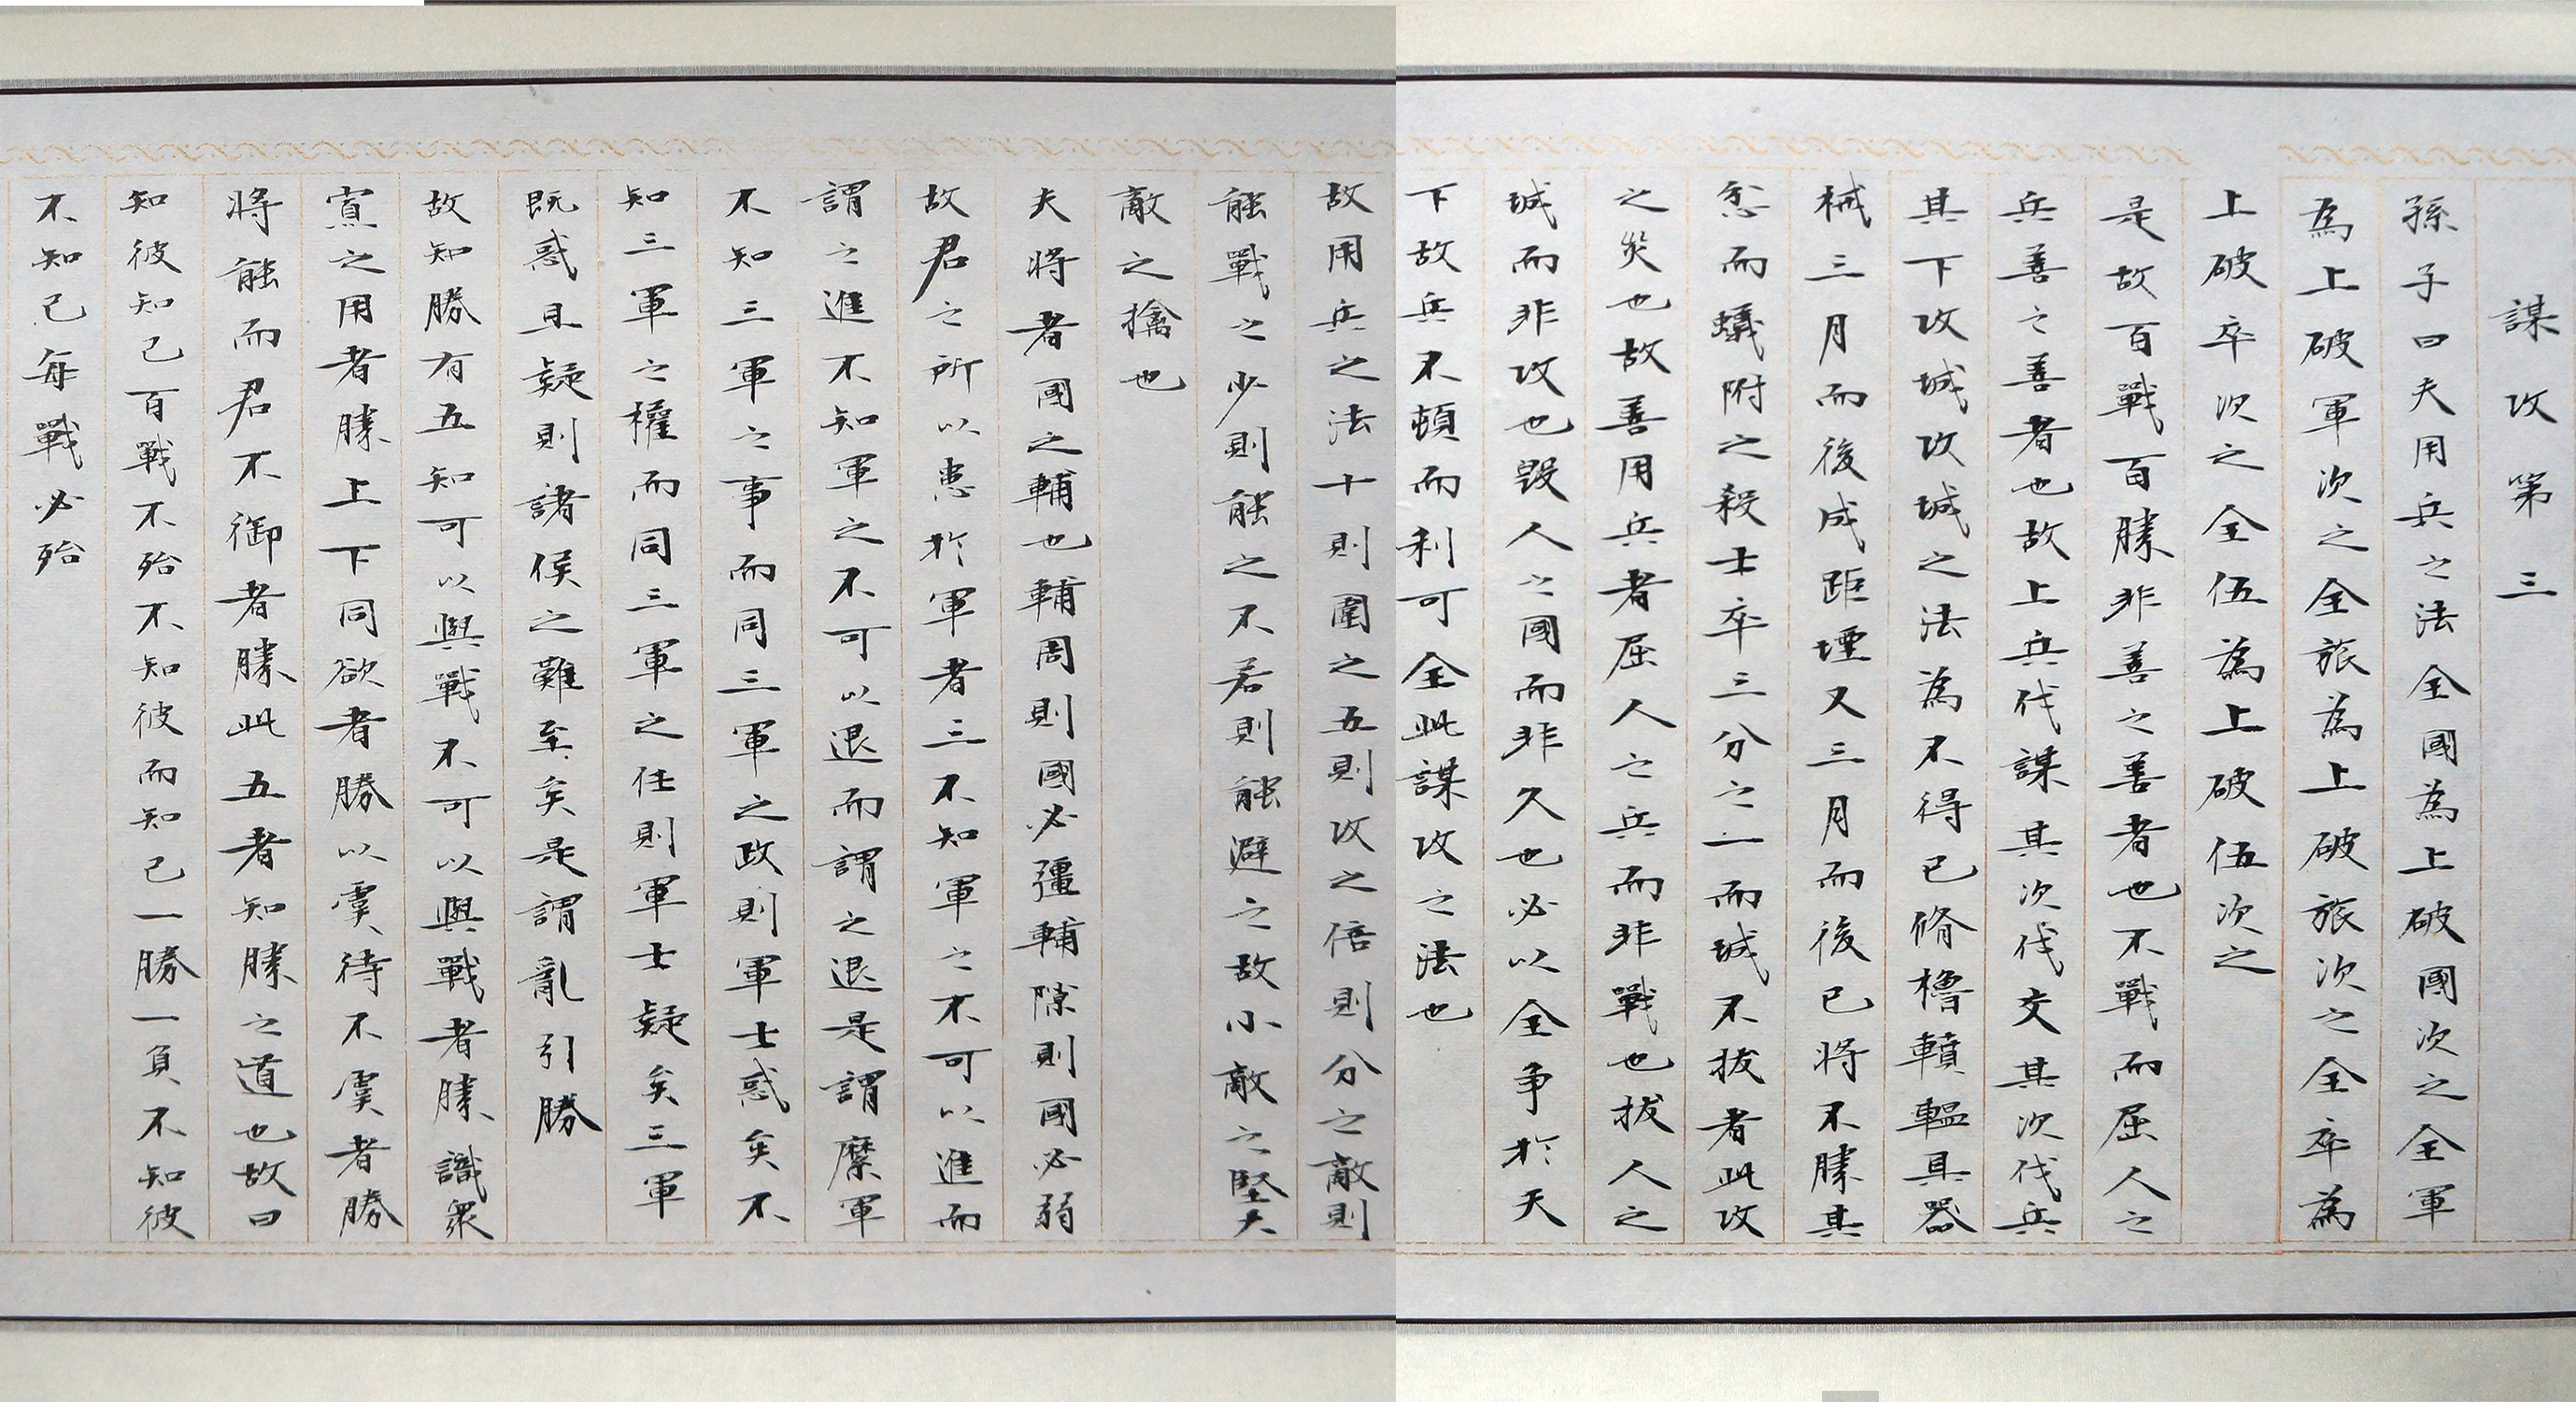 謀攻第三
孫子曰夫用兵之法全國為上破國次之全軍
為上破軍次之全旅為上破旅次之全卒為
上破卒次之全伍為上破伍次之
是故百戰百勝非善之善者也不戰而屈人之
兵善之善者也故上兵伐謀其次伐交其次伐兵
其下攻城攻城之法為不得已脩櫓轒轀具器
械三月而後成距堙又三月而後已將不勝其
忿而蟻附之殺士卒三分之一而城不拔者此攻
之災也故善用兵者屈人之兵而非戰也拔人之
城而非攻也毀人之國而非久也必以全争於天
下故兵不頓而利可全此謀攻之法也
故用兵之法十則圍之五則攻之倍則分之敵則
能戰之少則能之不若則能避之故小敵之堅大
敵之擒也
夫將者國之輔也輔周則國必彊輔隙則國必弱
故君之所以患於軍者三不知軍之不可以進而
謂之進不知軍之不可以退而謂之退是謂縻軍
不知三軍之事而同三軍之政則軍士惑矣不
知三軍之權而同三軍之任則軍士疑矣三軍
既惑且疑則諸侯之難至矣是謂亂引勝
故知勝有五知可以與戰不可以與戰者勝識衆
寡之用者勝上下同欲者勝以虞待不虞者勝
將能而君不御者勝此五者知勝之道也故曰
知彼知己百戰不殆不知彼而知己一勝一負不知彼
不知己每戰必殆